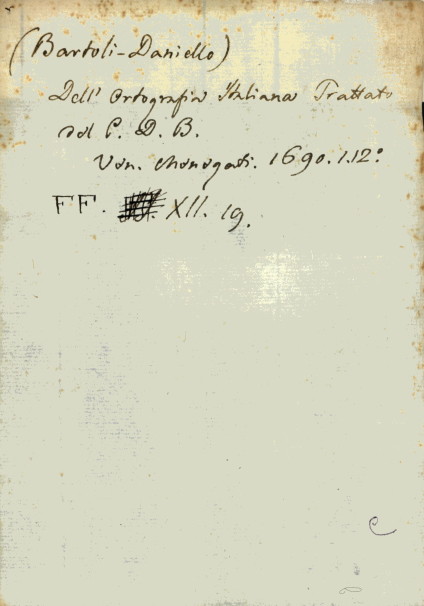 (Bartoli-Daniello)
Dell' Ortografia Italiana Trattato
del P. D. B.
Ven. Menegati. 1690. 1. 12º
FF. XII. 19.